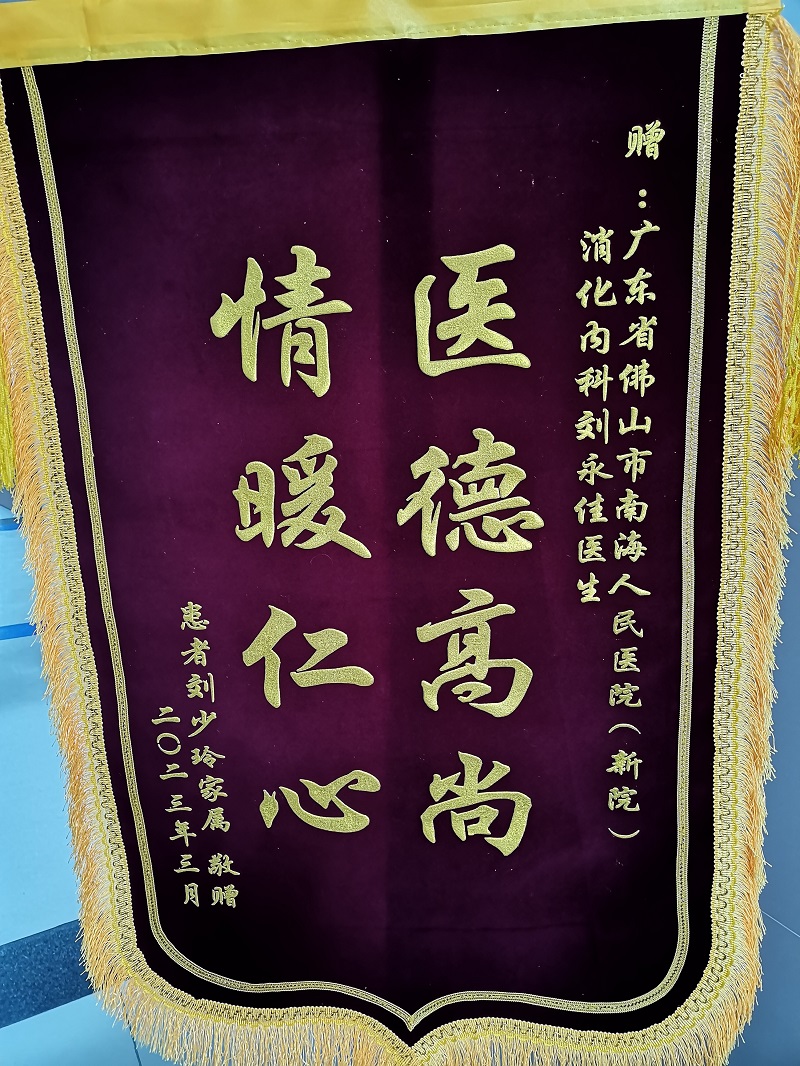 赠：广东省佛山市南海人民医院（新院）
消化内科刘永佳医生
医德高尚
情暖仁心
患者刘少玲家属 敬赠
二〇二三年三月